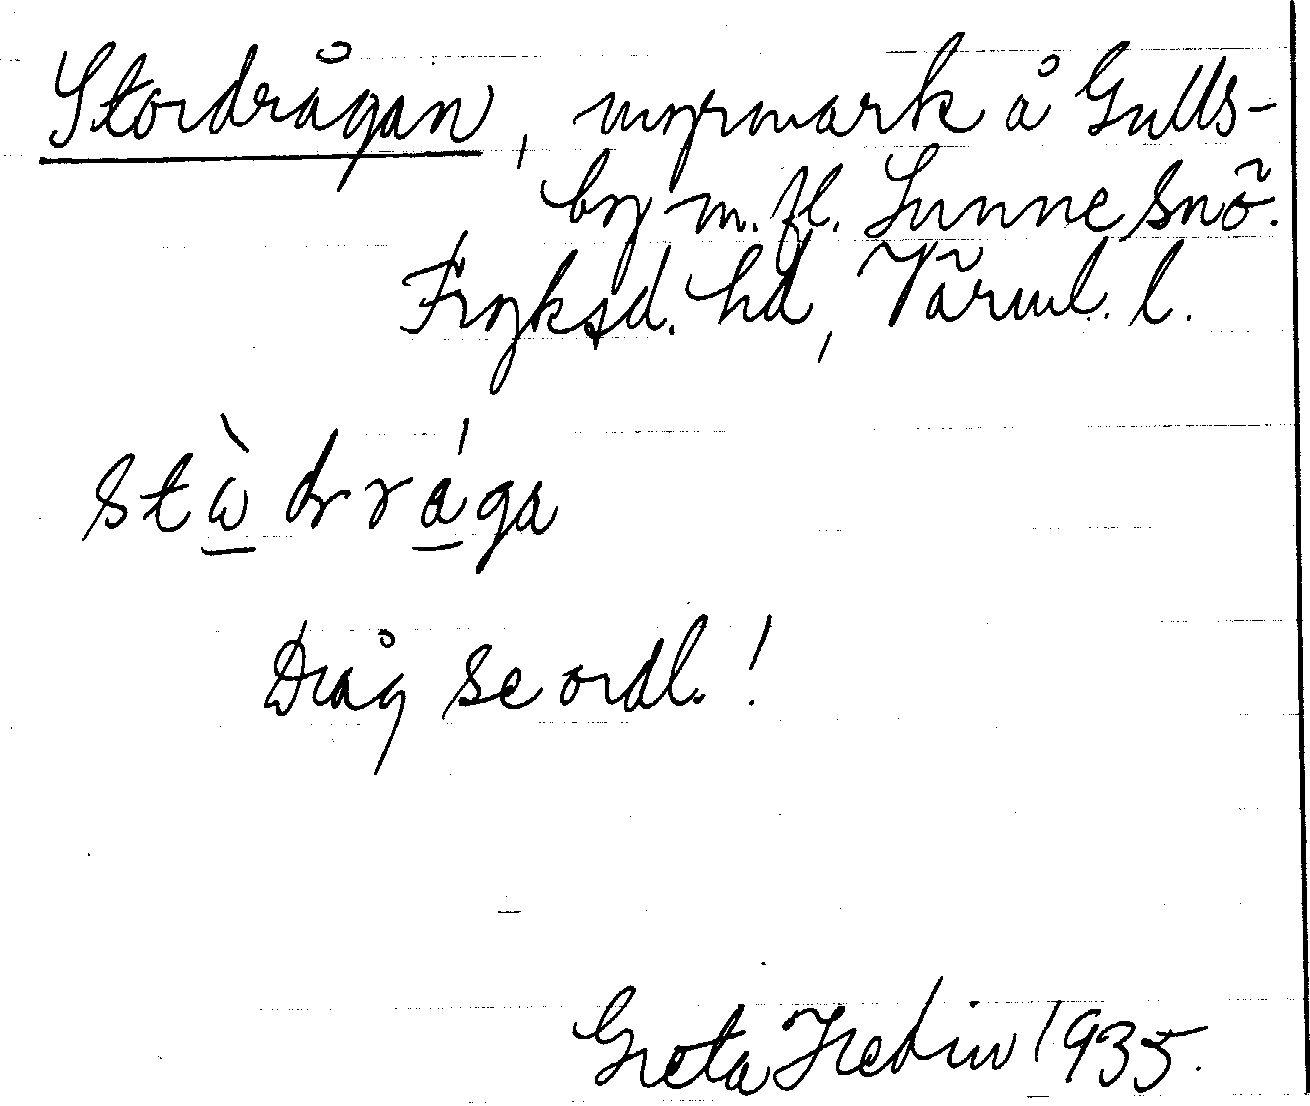 Stordrågan, myrmark å Gulls-
by m. fl. Sunne snö.
Fryksd. hd, Värml. l.
stὼdrrága
Dråg se ordl.!
Greta Hedin 1935.